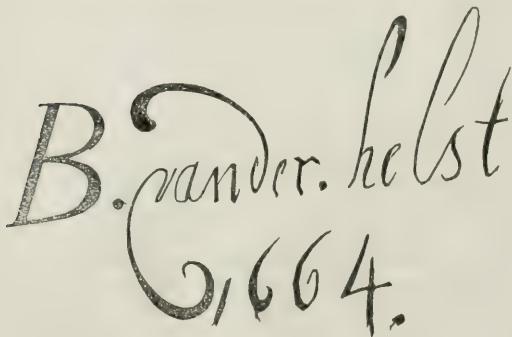 B. vander. helst
1664.